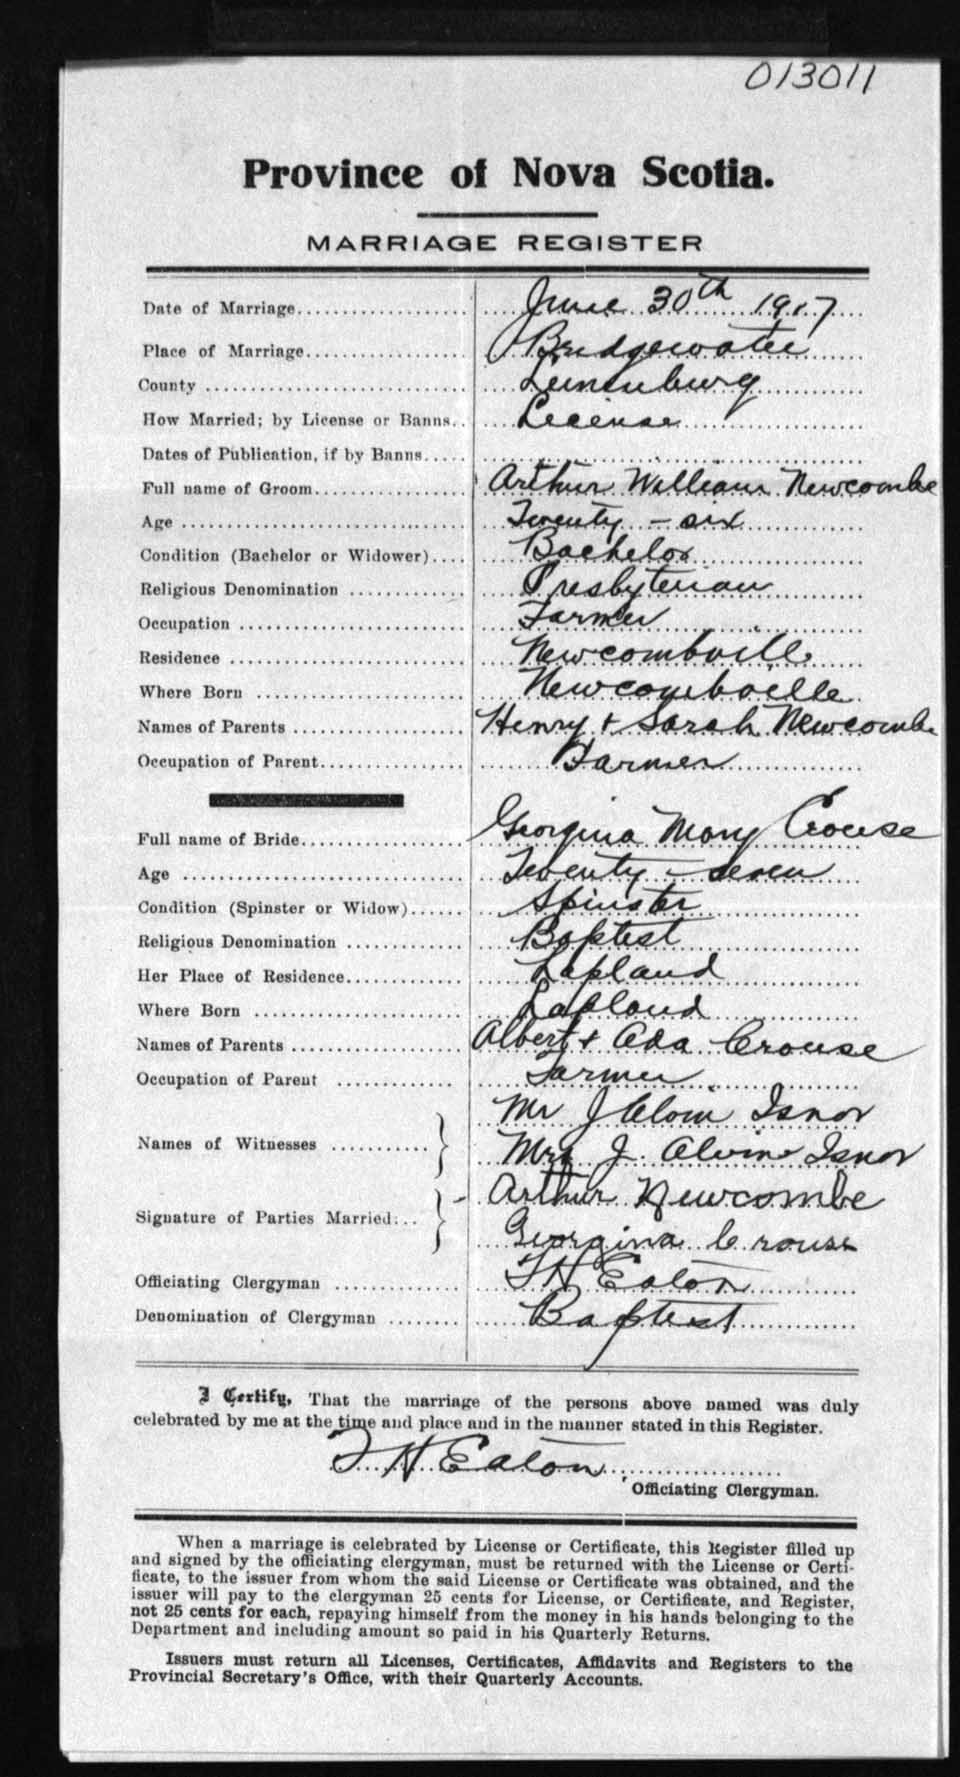 013011
Province of Nova Scotia.
MARRIAGE REGISTER
Date of Marriage.................... June 30th 1917
Place of Marriage.................... Bridgewater
County .................... Lunenburg
How Married; by License or Banns.. License
Dates of Publication, if by Banns.....
Full name of Groom.................... Arthur William Newcombe
Age .................... Twenty - six
Condition (Bachelor or Widower).... Bachelor
Religious Denomination ............ Presbyterian
Occupation .................... Farmer
Residence .................... Newcombville
Where Born .................... Newcombville
Names of Parents .................... Henry + Sarah Newcombe
Occupation of Parent.................... Farmer
Full name of Bride.................... Georgina Mary Crouse
Age .................... Twenty - seven
Condition (Spinster or Widow)...... Spinster
Religious Denomination ............ Baptist
Her Place of Residence............. Lapland
Where Born .................... Lapland
Names of Parents .................... Albert + Ada Crouse
Occupation of Parent ............. Farmer
Mr J Alvin Isnor
Names of Witnesses ........... }
Mrs J. Alvin Isnor
Arthur Newcombe
Signature of Parties Married... }
Georgina Crouse
Officiating Clergyman ............. F H Eaton
Denomination of Clergyman ........ Baptist
I Certify, That the marriage of the persons above named was duly
celebrated by me at the time and place and in the manner stated in this Register.
F H Eaton
Officiating Clergyman.
When a marriage is celebrated by License or Certificate, this Register filled up
and signed by the officiating clergyman, must be returned with the License or Certi-
ficate, to the issuer from whom the said License or Certificate was obtained, and the
issuer will pay to the clergyman 25 cents for License, or Certificate, and Register,
not 25 cents for each, repaying himself from the money in his hands belonging to the
Department and including amount so paid in his Quarterly Returns.
Issuers must return all Licenses, Certificates, Affidavits and Registers to the
Provincial Secretary's Office, with their Quarterly Accounts.